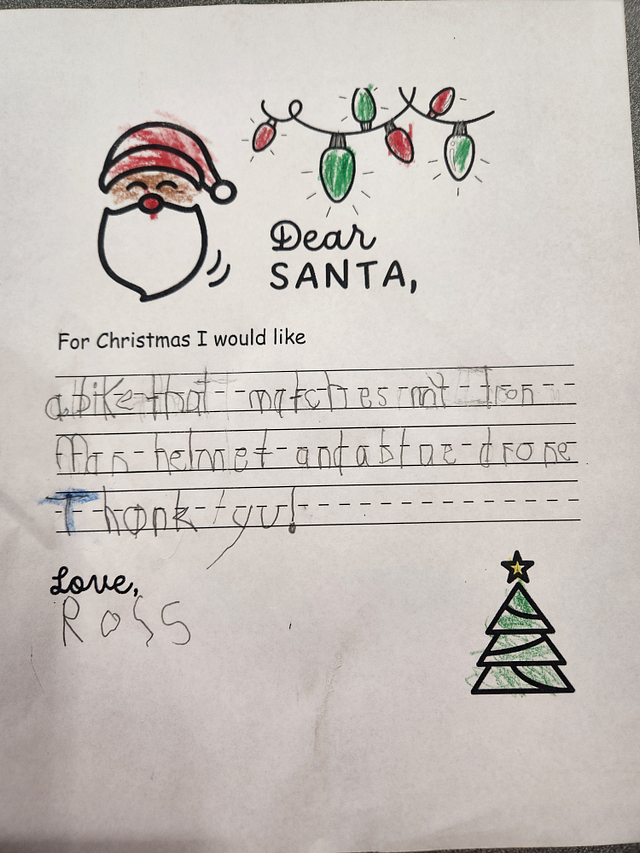 Dear
SANTA,
For Christmas I would like
a bike that matches my Iron
Man helmet and a blue drone
Thank yu!
Love,
Ross